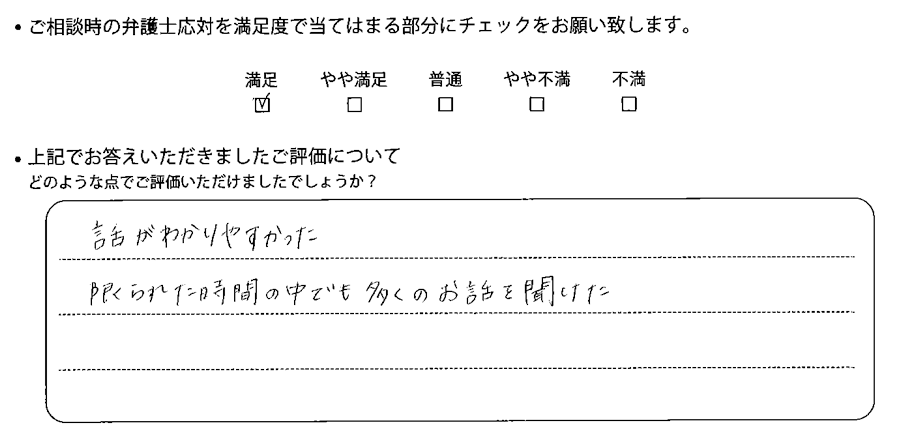 ・ご相談時の弁護士応対を満足度で当てはまる部分にチェックをお願い致します。
満足 やや満足 普通 やや不満 不満
☑ □ □ □ □
・上記でお答えいただきましたご評価について
どのような点でご評価いただけましたでしょうか？
話がわかりやすかった
限られた時間の中でも多くのお話を聞けた